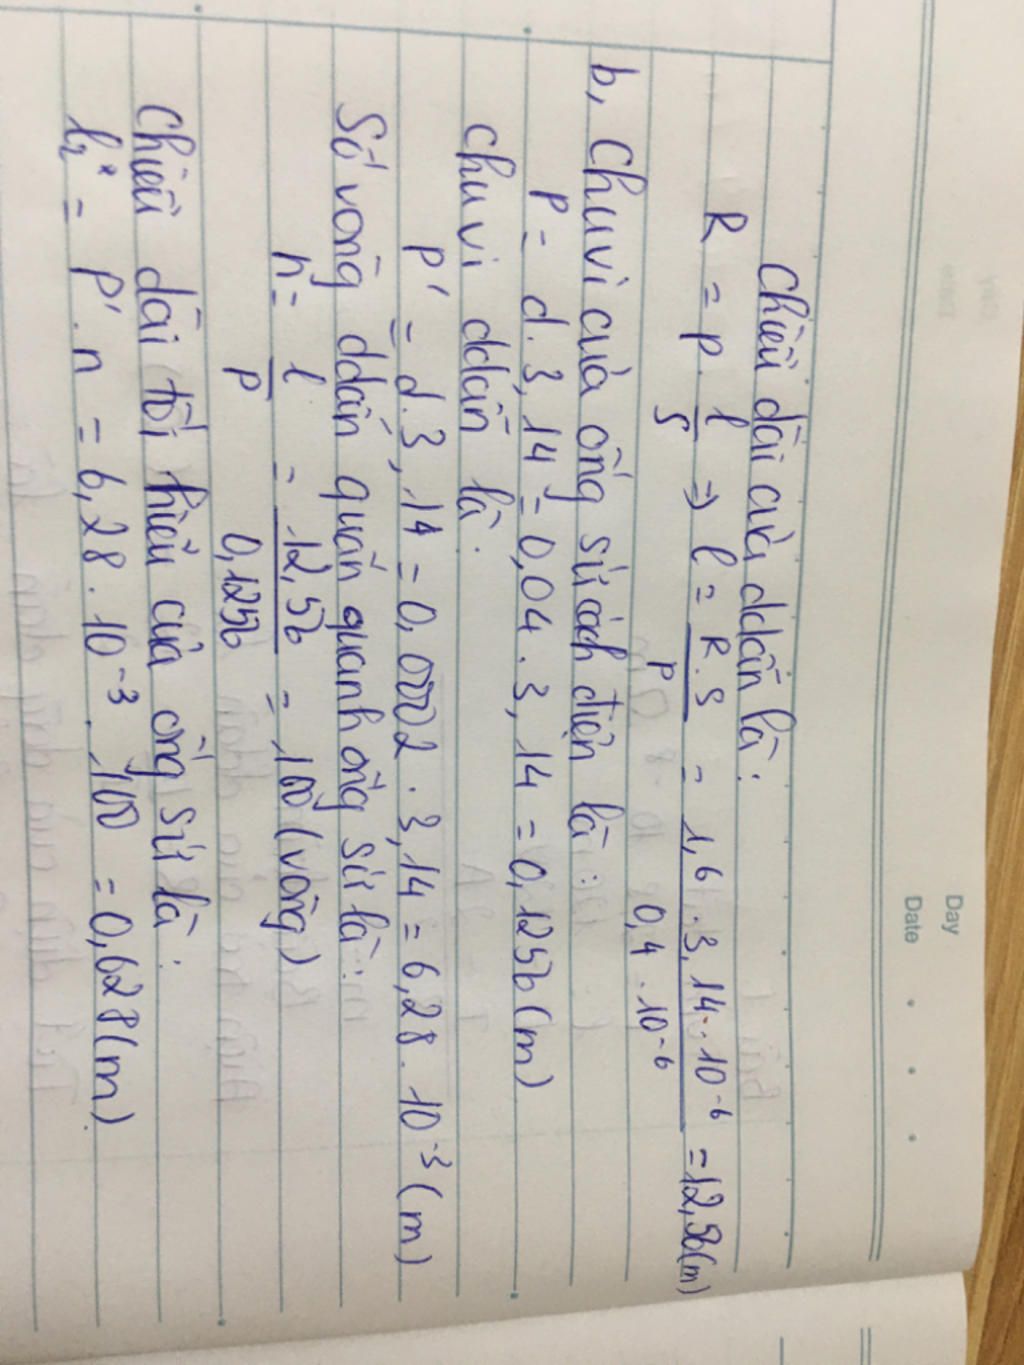 Day
Date
Chiều dài của ddẫn là:
R = ρ . l/S => l = R.S/ρ = 1,6 . 3,14 . 10⁻⁶ / 0,4 . 10⁻⁶ = 12,56 (m)
b, Chu vi của ống sứ cách điện là :
P = d . 3,14 = 0,04 . 3,14 = 0,1256 (m)
Chu vi ddẫn là.
P' = d . 3,14 = 0,002 . 3,14 = 6,28 . 10⁻³ (m)
Số vòng ddẫn quấn quanh ống sứ là :
n = l/P = 12,56/0,1256 = 100 (vòng)
Chiều dài tối thiểu của ống sứ là :
= P' . n = 6,28 . 10⁻³ . 100 = 0,628 (m)